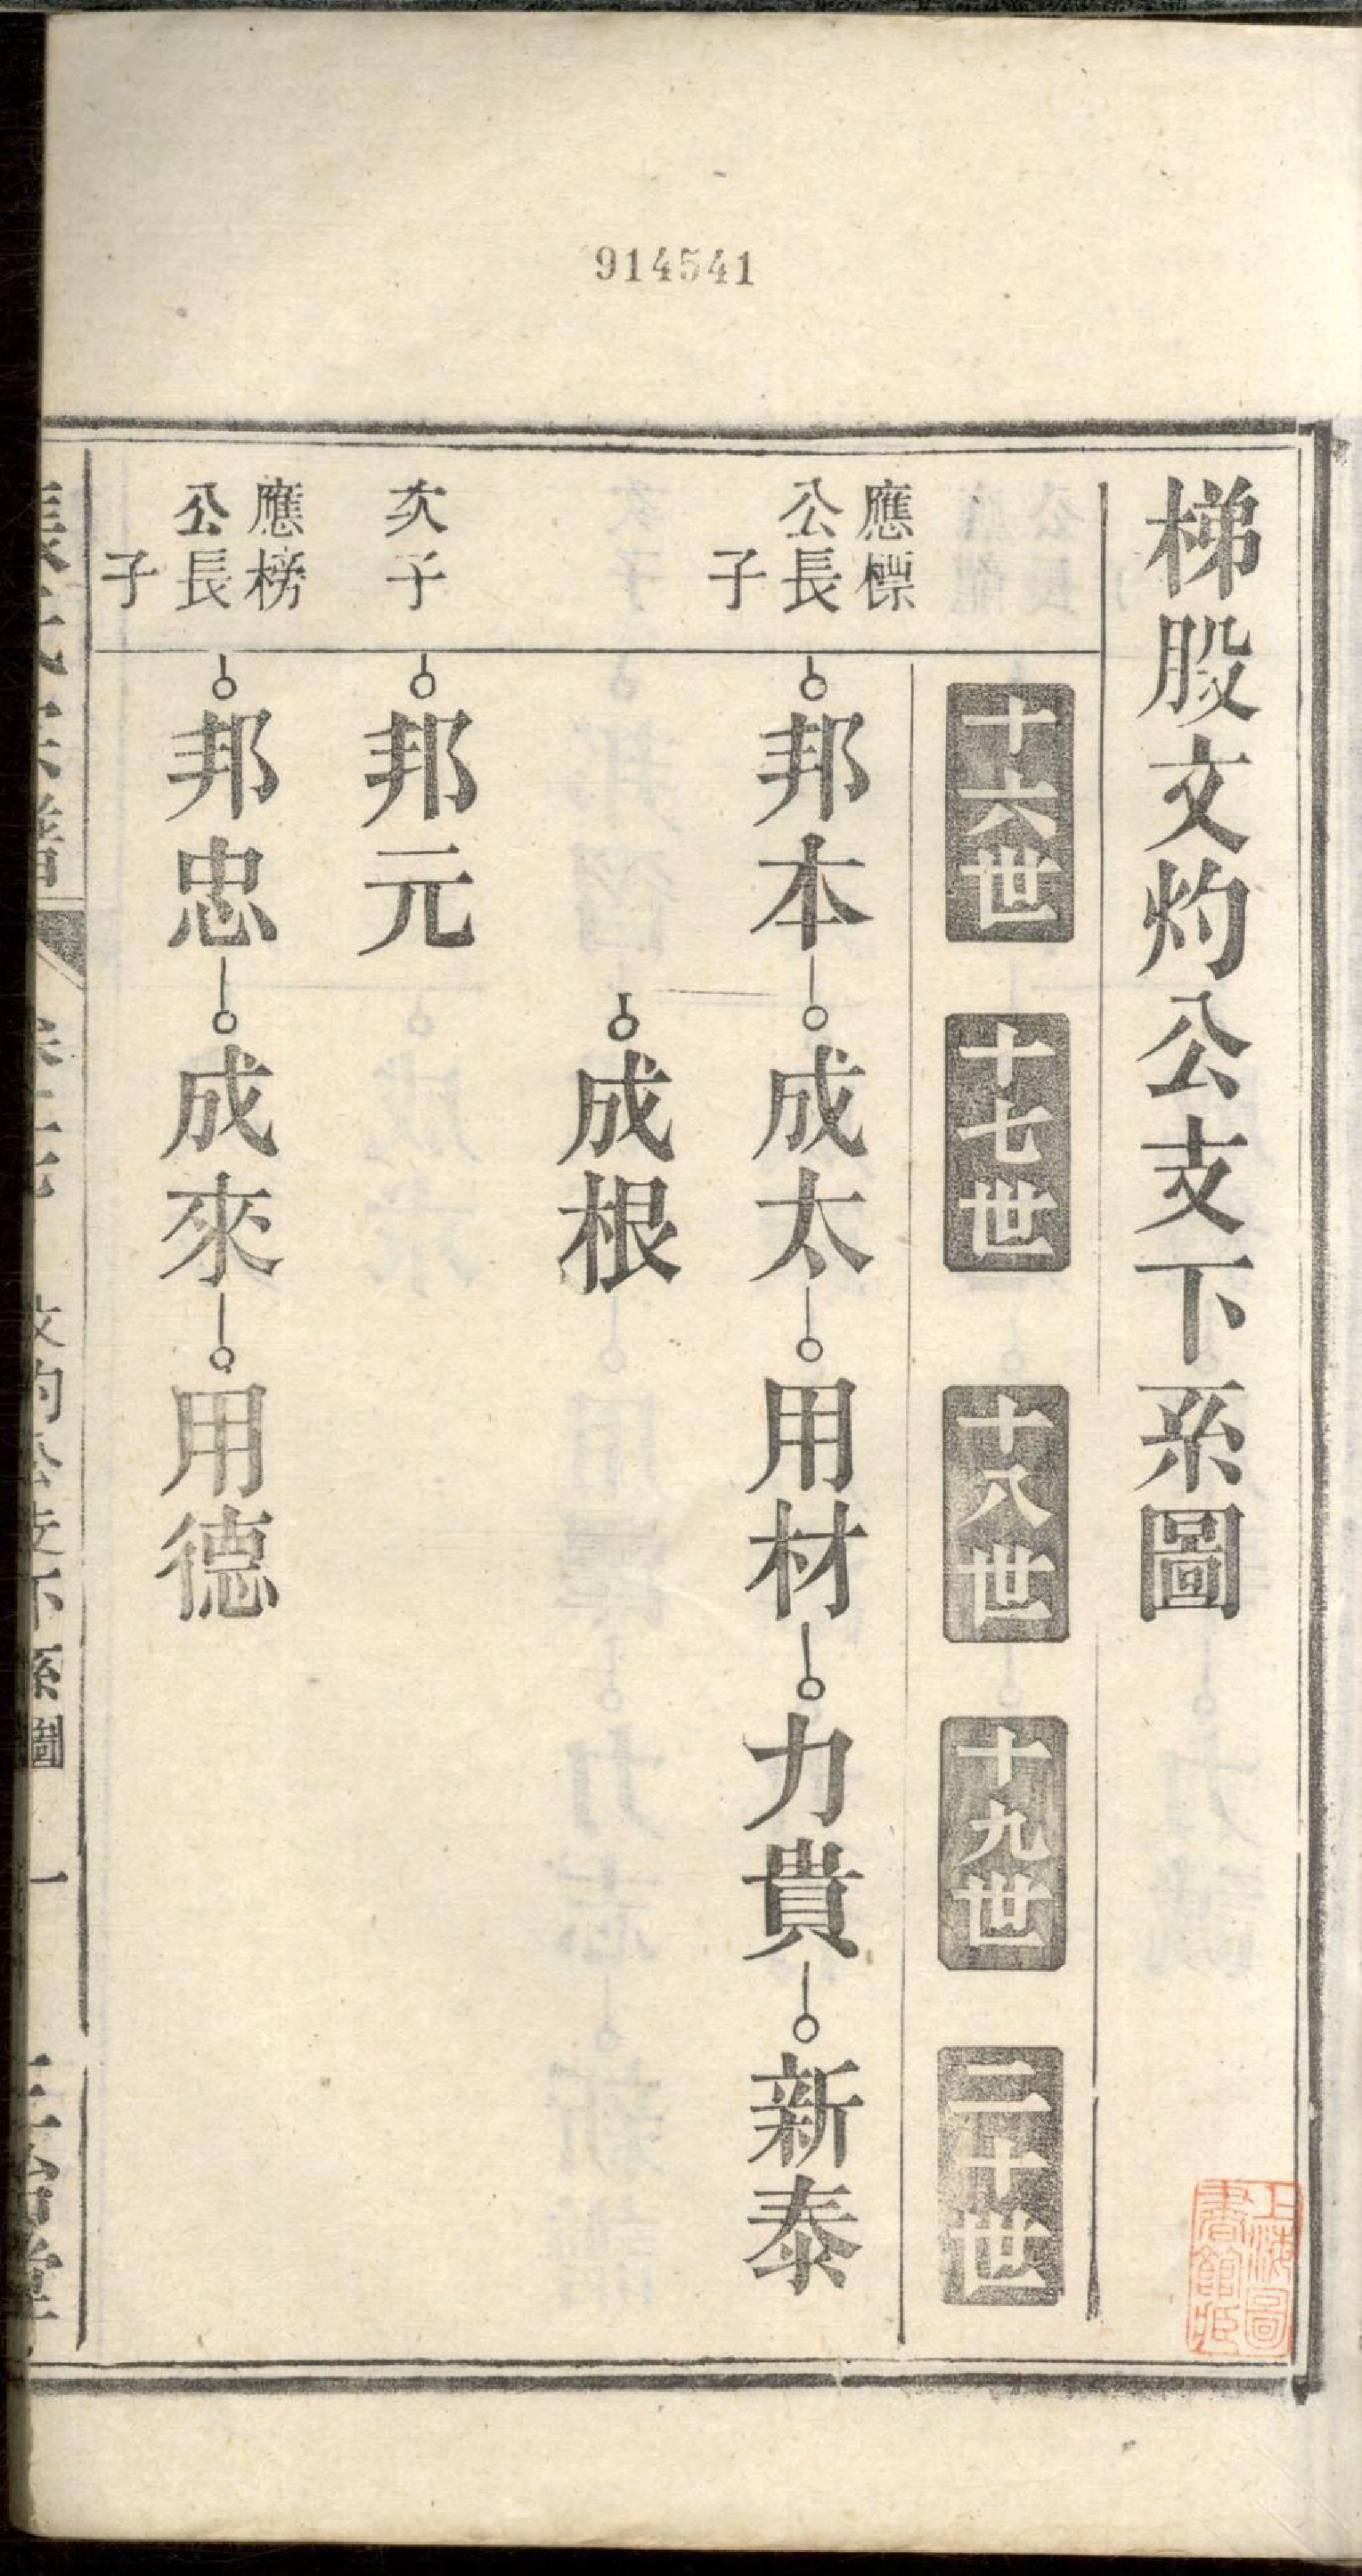 914541
梯股文灼公支下系圖
十六世
十七世
十八世
十九世
二十世
應標
公長
子
邦本
成太
用材
力貴
新泰
成根
次子
邦元
應榜
公長
子
邦忠
成來
用德
文灼公支下系圖
一
上海圖
書館藏